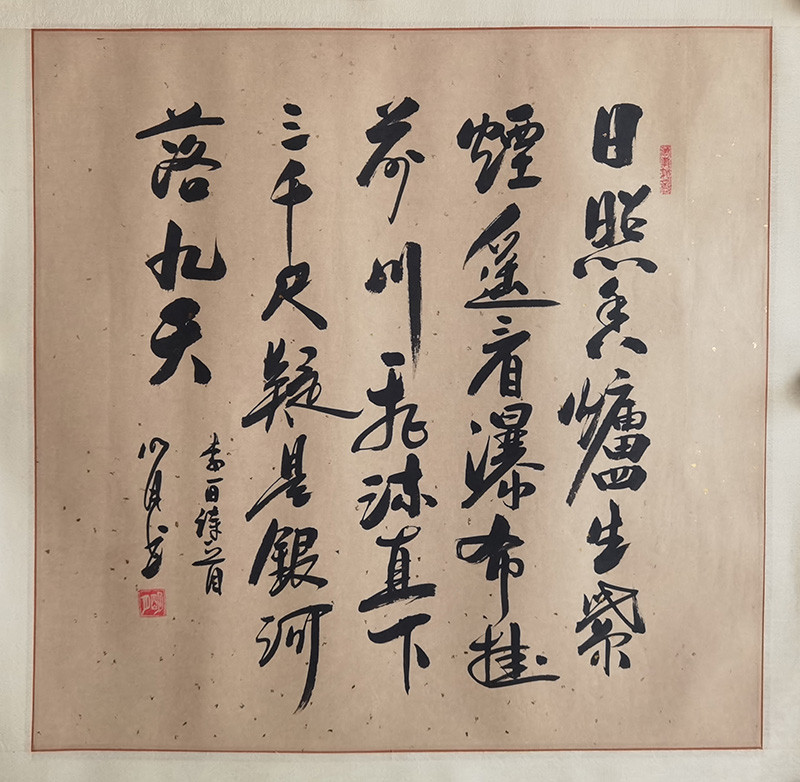 日照香爐生紫
煙遙看瀑布挂
前川飛流直下
三千尺疑是銀河
落九天
李白詩一首
月书